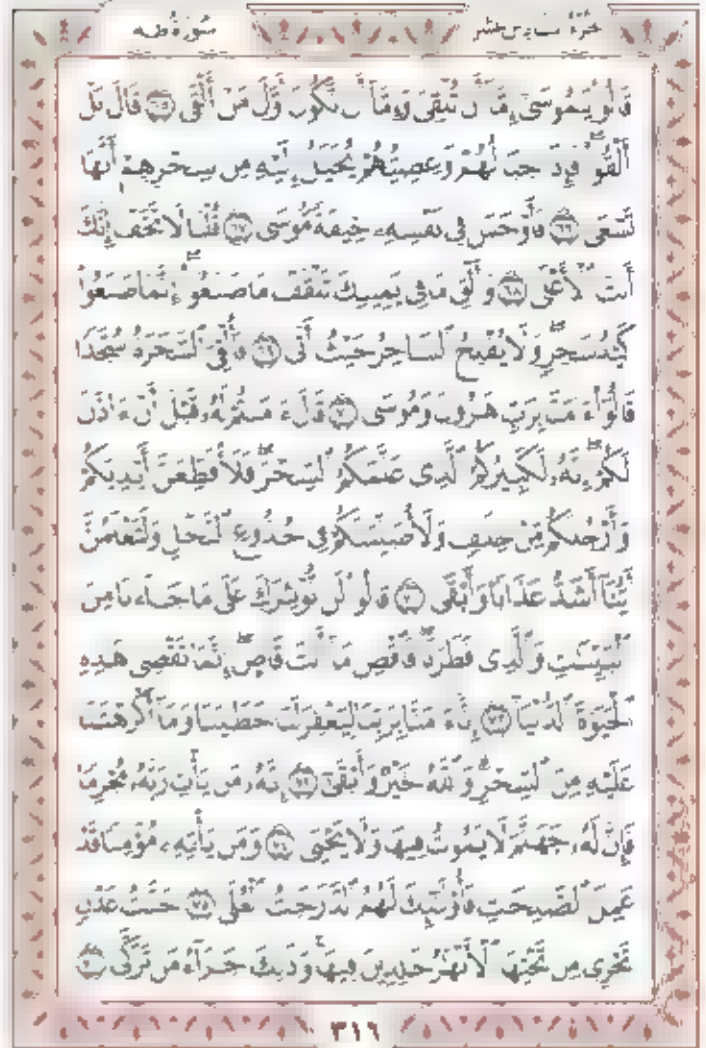 سُورَةُ طه
قَالُوا۟ يَـٰمُوسَىٰٓ إِمَّآ أَن تُلْقِىَ وَإِمَّآ أَن نَّكُونَ أَوَّلَ مَنْ أَلْقَىٰ ٦٥ قَالَ بَلْ
أَلْقُوا۟ ۖ فَإِذَا حِبَالُهُمْ وَعِصِيُّهُمْ يُخَيَّلُ إِلَيْهِ مِن سِحْرِهِمْ أَنَّهَا
تَسْعَىٰ ٦٦ فَأَوْجَسَ فِى نَفْسِهِۦ خِيفَةً مُّوسَىٰ ٦٧ قُلْنَا لَا تَخَفْ إِنَّكَ
أَنتَ ٱلْأَعْلَىٰ ٦٨ وَأَلْقِ مَا فِى يَمِينِكَ تَلْقَفْ مَا صَنَعُوٓا۟ ۖ إِنَّمَا صَنَعُوا۟
كَيْدُ سَـٰحِرٍ ۖ وَلَا يُفْلِحُ ٱلسَّاحِرُ حَيْثُ أَتَىٰ ٦٩ فَأُلْقِىَ ٱلسَّحَرَةُ سُجَّدًا
قَالُوٓا۟ ءَامَنَّا بِرَبِّ هَـٰرُونَ وَمُوسَىٰ ٧٠ قَالَ ءَامَنتُمْ لَهُۥ قَبْلَ أَنْ ءَاذَنَ
لَكُمْ ۖ إِنَّهُۥ لَكَبِيرُكُمُ ٱلَّذِى عَلَّمَكُمُ ٱلسِّحْرَ ۖ فَلَأُقَطِّعَنَّ أَيْدِيَكُمْ
وَأَرْجُلَكُم مِّنْ خِلَـٰفٍ وَلَأُصَلِّبَنَّكُمْ فِى جُذُوعِ ٱلنَّخْلِ وَلَتَعْلَمُنَّ
أَيُّنَآ أَشَدُّ عَذَابًا وَأَبْقَىٰ ٧١ قَالُوا۟ لَن نُّؤْثِرَكَ عَلَىٰ مَا جَآءَنَا مِنَ
ٱلْبَيِّنَـٰتِ وَٱلَّذِى فَطَرَنَا ۖ فَٱقْضِ مَآ أَنتَ قَاضٍ ۖ إِنَّمَا تَقْضِى هَـٰذِهِ
ٱلْحَيَوٰةَ ٱلدُّنْيَآ ٧٢ إِنَّآ ءَامَنَّا بِرَبِّنَا لِيَغْفِرَ لَنَا خَطَـٰيَـٰنَا وَمَآ أَكْرَهْتَنَا
عَلَيْهِ مِنَ ٱلسِّحْرِ ۗ وَٱللَّهُ خَيْرٌ وَأَبْقَىٰٓ ٧٣ إِنَّهُۥ مَن يَأْتِ رَبَّهُۥ مُجْرِمًا
فَإِنَّ لَهُۥ جَهَنَّمَ لَا يَمُوتُ فِيهَا وَلَا يَحْيَىٰ ٧٤ وَمَن يَأْتِهِۦ مُؤْمِنًا قَدْ
عَمِلَ ٱلصَّـٰلِحَـٰتِ فَأُو۟لَـٰٓئِكَ لَهُمُ ٱلدَّرَجَـٰتُ ٱلْعُلَىٰ ٧٥ جَنَّـٰتُ عَدْنٍ
تَجْرِى مِن تَحْتِهَا ٱلْأَنْهَـٰرُ خَـٰلِدِينَ فِيهَا ۚ وَذَٰلِكَ جَزَآءُ مَن تَزَكَّىٰ ٧٦
٣١٦